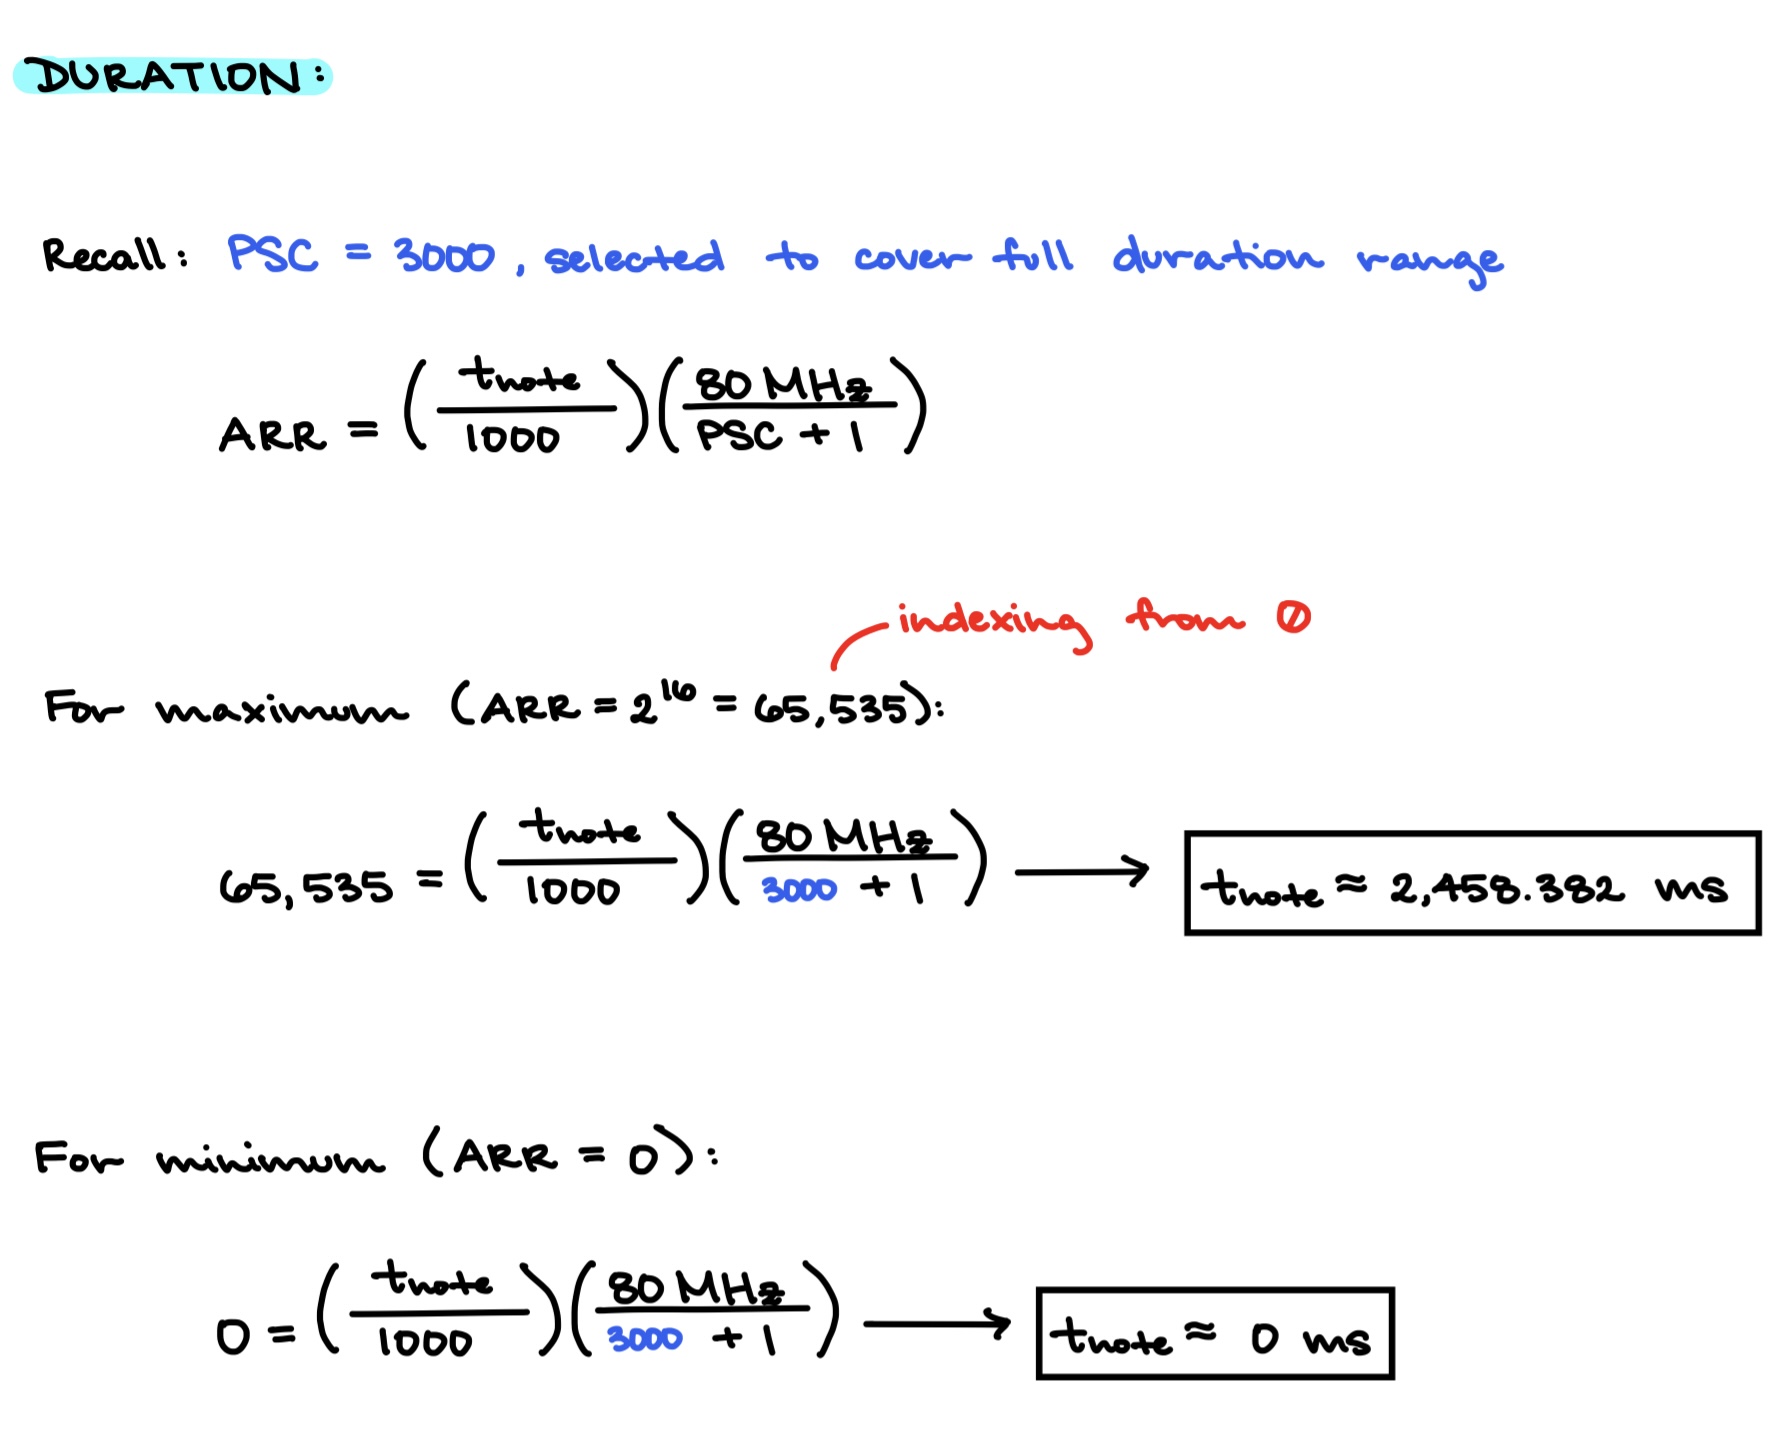 DURATION:
Recall: PSC = 3000, selected to cover full duration range
ARR = (t_note / 1000)(80 MHz / PSC + 1)
indexing from 0
For maximum (ARR = 2^16 = 65,535):
65,535 = (t_note / 1000)(80 MHz / 3000 + 1) → t_note ≈ 2,458.382 ms
For minimum (ARR = 0):
0 = (t_note / 1000)(80 MHz / 3000 + 1) → t_note ≈ 0 ms